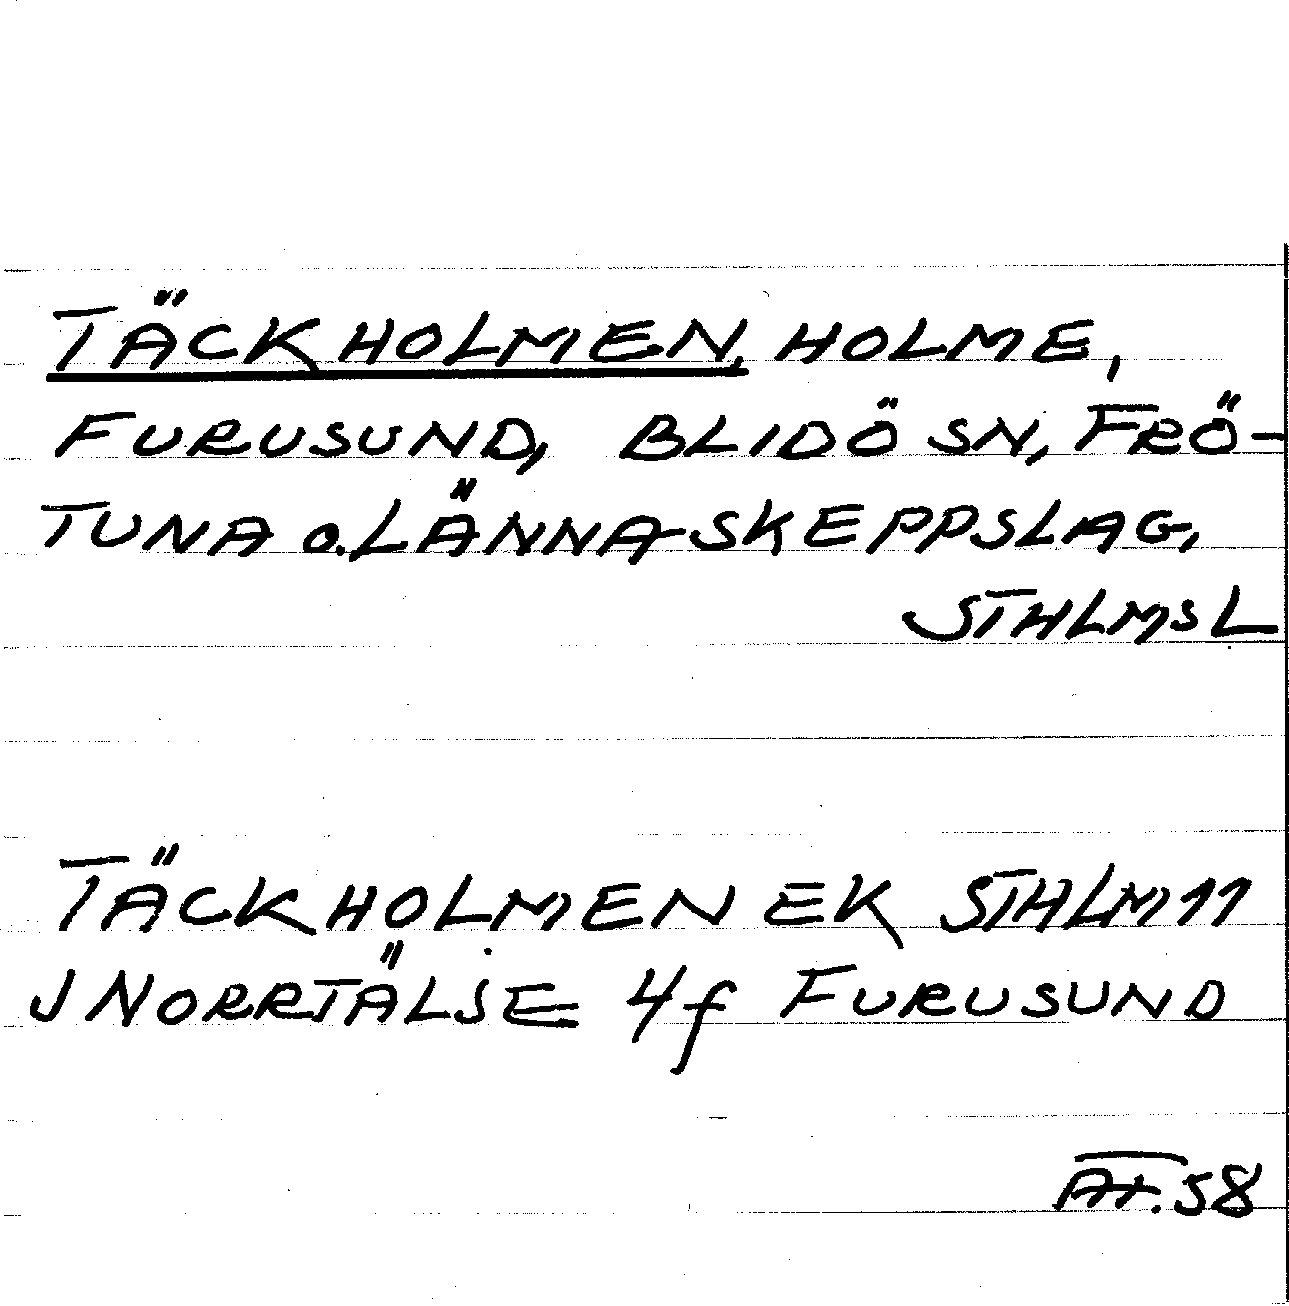 TÄCKHOLMEN, HOLME,
FURUSUND, BLIDÖ SN, FRÖ-
TUNA o. LÄNNA-SKEPPSLAG,
STHLMS L
TÄCKHOLMEN EK STHLM 11
J NORRTÄLJE 4f FURUSUND
AT. 58